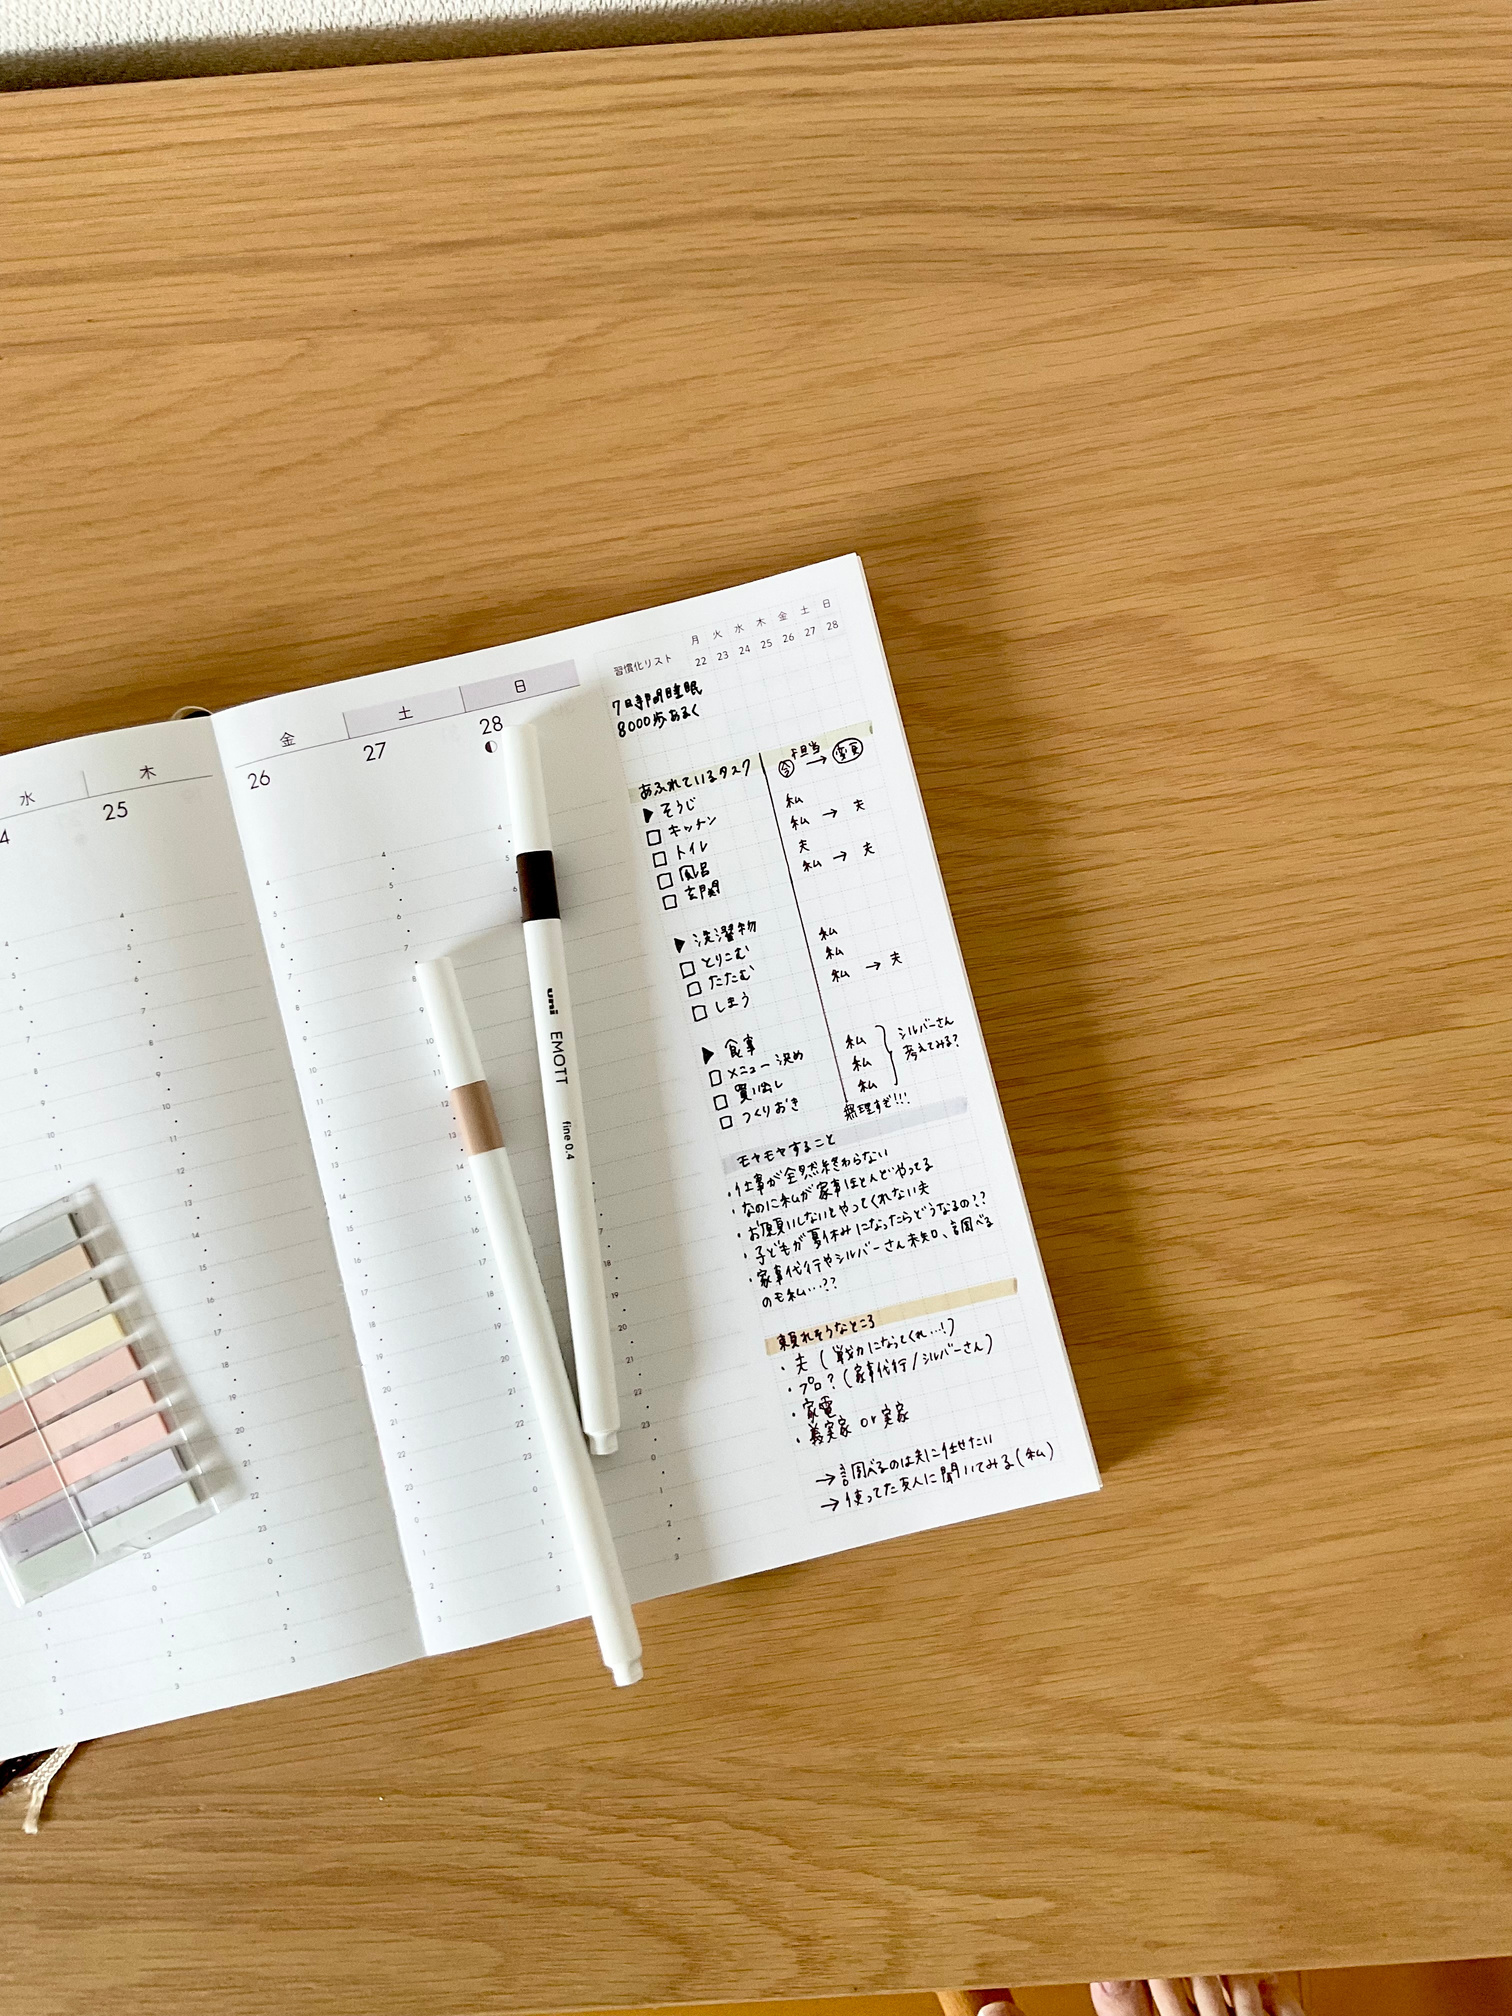 水
木
4
25
金
土
日
26
27
28
uni EMOTT fine 0.4
月 火 水 木 金 土 日
習慣化リスト 22 23 24 25 26 27 28
7時間睡眠
8000歩あるく
担当
あふれているタスク 今 → 変更
▶ そうじ 私
□ キッチン 私 → 夫
□ トイレ 夫
□ 風呂 私 → 夫
□ 玄関
▶ 洗濯物 私
□ とりこむ 私
□ たたむ 私 → 夫
□ しまう
▶ 食事 私 シルバーさん
□ メニュー決め 私 考えてみる?
□ 買い出し 私
□ つくりおき 無理すぎ!!!
モヤモヤすること
・仕事が全然終わらない
・なのに私が家事ほとんどやってる
・お願いしないとやってくれない夫
・子どもが夏休みになったらどうなるの??
・家事代行やシルバーさん未知、調べる
のも私…??
頼れそうなところ
・夫(戦力になってくれ…!)
・プロ?(家事代行/シルバーさん)
・家電
・義実家 or 実家
→調べるのは夫に任せたい
→使ってた友人に聞いてみる(私)